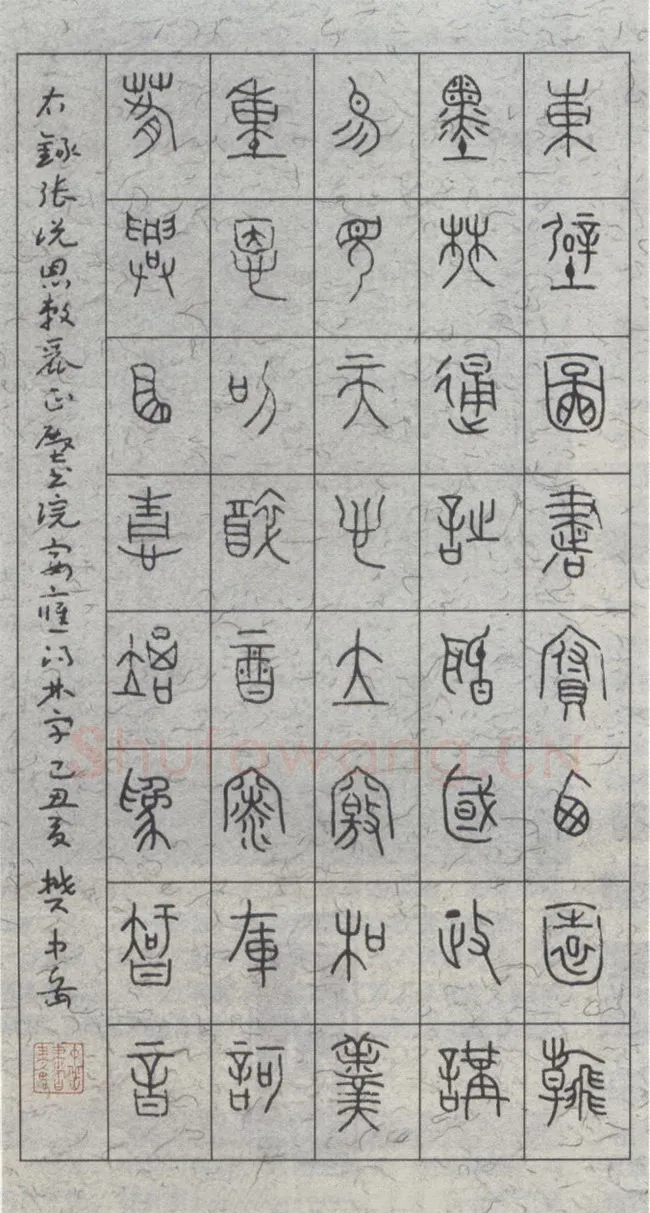 東壁圖書府西園翰
墨林誦詩聞國政講
易見天心位竊和羹
重恩叨醉酒深歌
春興曲情竭爲知音
右錄张说恩敕麗正殿书院宴應得林字己丑夏 樊中岳
Shufawang.CN